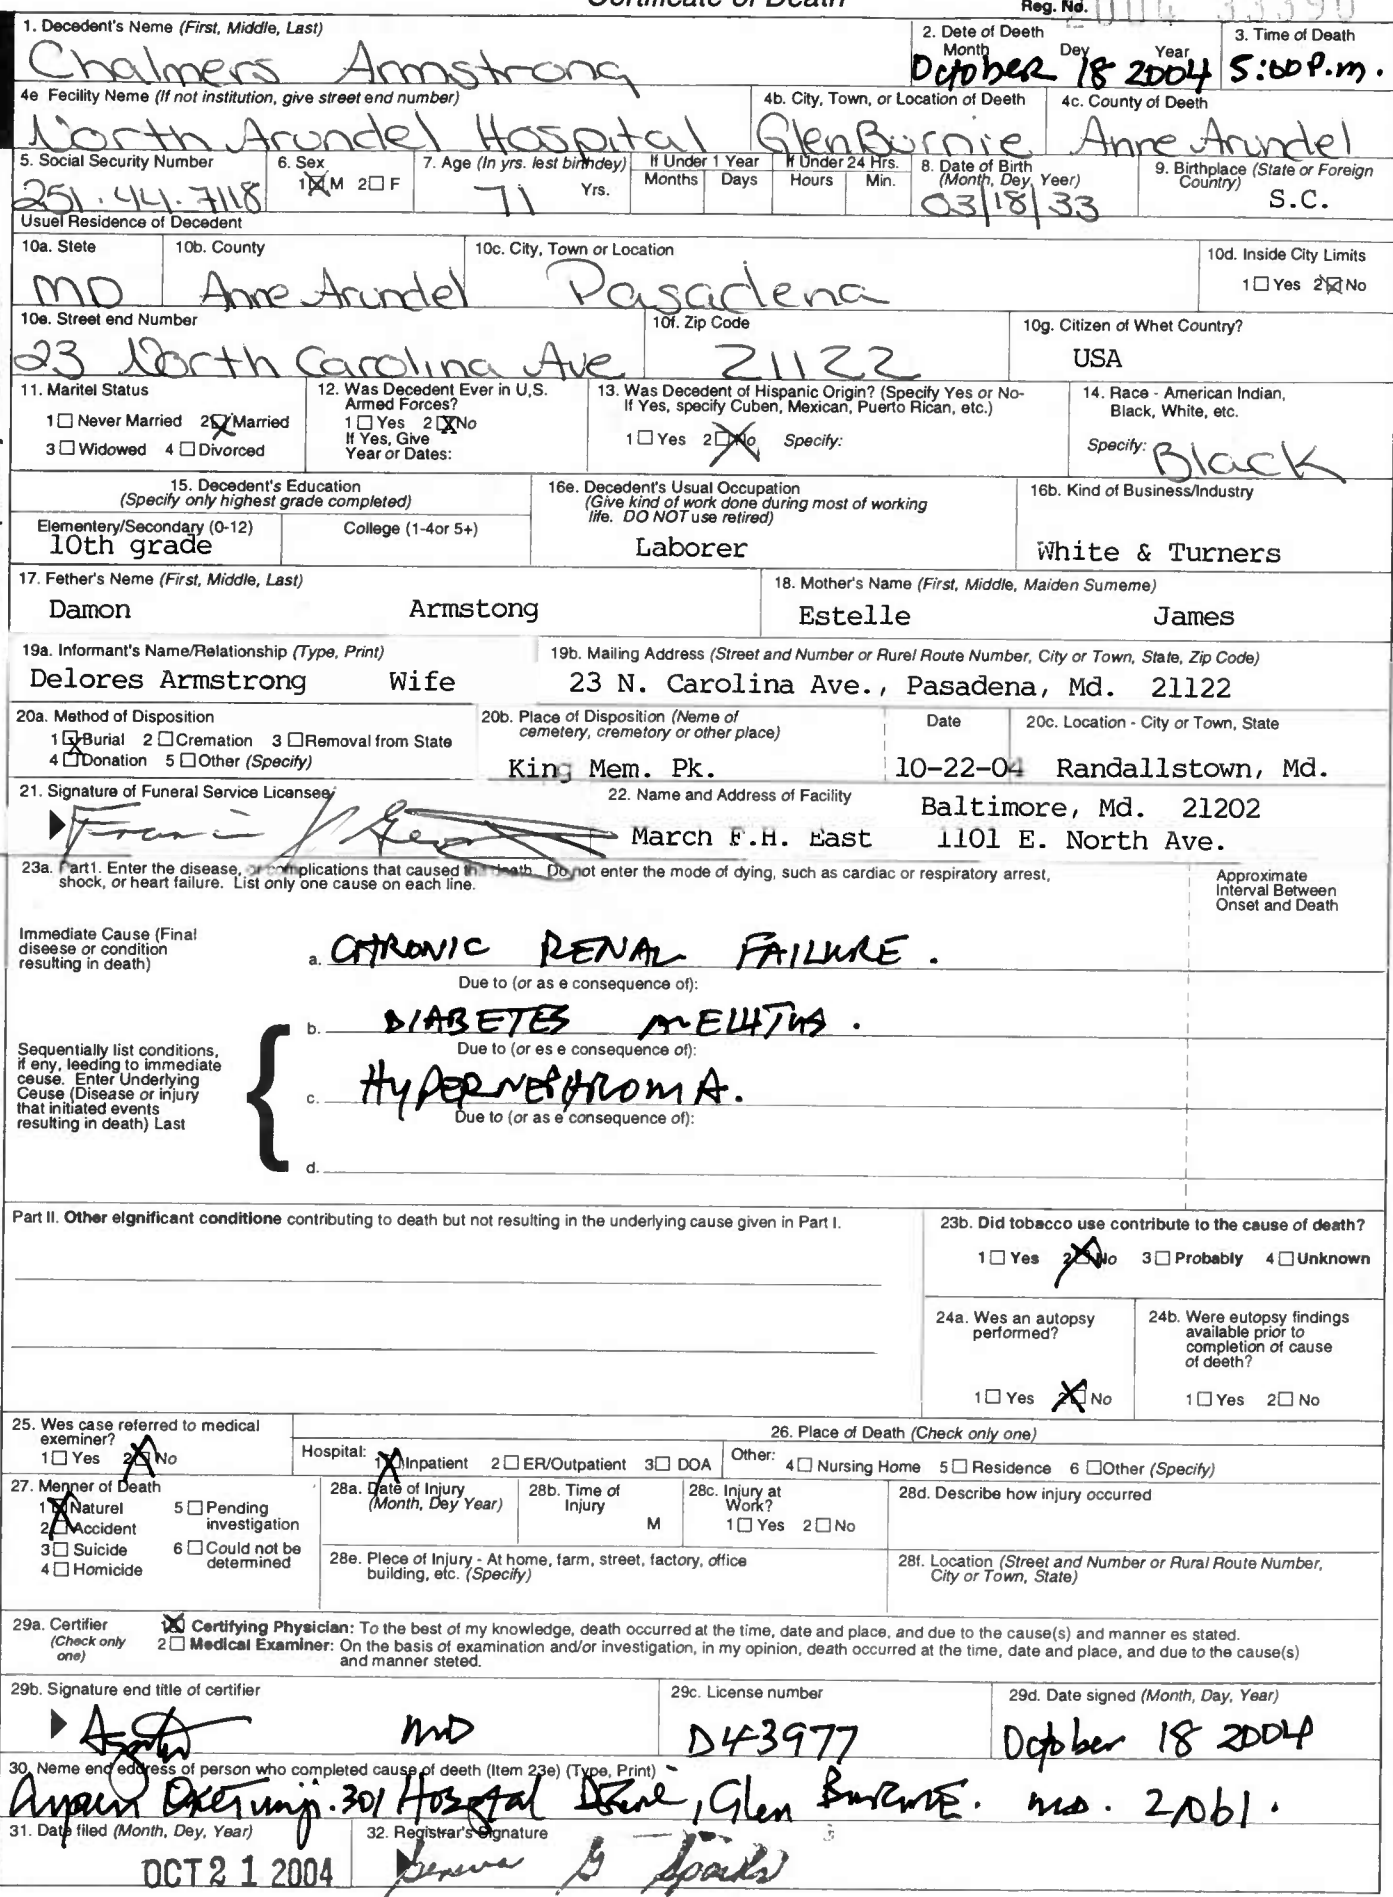 Certificate of Death
Reg. No. 2004 33390
1. Decedent's Name (First, Middle, Last)
Chalmers Armstrong
2. Dete of Deeth
Month Dey Year
October 18 2004
3. Time of Death
5:00 P.m.
4e Fecility Name (If not institution, give street end number)
North Arundel Hospital
4b. City, Town, or Location of Deeth
Glen Burnie
4c. County of Deeth
Anne Arundel
5. Social Security Number
251-44-7118
6. Sex
1☒M 2☐F
7. Age (In yrs. lest birthdey)
71 Yrs.
If Under 1 Year
Months Days
If Under 24 Hrs.
Hours Min.
8. Date of Birth
(Month, Dey, Yeer)
03/18/33
9. Birthplace (State or Foreign
Country)
S.C.
Usuel Residence of Decedent
10a. Stete
MD
10b. County
Anne Arundel
10c. City, Town or Location
Pasadena
10d. Inside City Limits
1☐Yes 2☒No
10e. Street end Number
23 North Carolina Ave
10f. Zip Code
21122
10g. Citizen of Whet Country?
USA
11. Maritel Status
1☐Never Married 2☒Married
3☐Widowed 4☐Divorced
12. Was Decedent Ever in U,S.
Armed Forces?
1☐Yes 2☒No
If Yes, Give
Year or Dates:
13. Was Decedent of Hispanic Origin? (Specify Yes or No-
If Yes, specify Cuben, Mexican, Puerto Rican, etc.)
1☐Yes 2☒No Specify:
14. Race - American Indian,
Black, White, etc.
Specify: Black
15. Decedent's Education
(Specify only highest grade completed)
Elementery/Secondary (0-12)
10th grade
College (1-4or 5+)
16e. Decedent's Usual Occupation
(Give kind of work done during most of working
life. DO NOT use retired)
Laborer
16b. Kind of Business/Industry
White & Turners
17. Father's Name (First, Middle, Last)
Damon Armstong
18. Mother's Name (First, Middle, Maiden Sumeme)
Estelle James
19a. Informant's Name/Relationship (Type, Print)
Delores Armstrong Wife
19b. Mailing Address (Street and Number or Rurel Route Number, City or Town, State, Zip Code)
23 N. Carolina Ave., Pasadena, Md. 21122
20a. Method of Disposition
1☒Burial 2☐Cremation 3☐Removal from State
4☐Donation 5☐Other (Specify)
20b. Place of Disposition (Neme of
cemetery, cremetory or other place)
King Mem. Pk.
Date
10-22-04
20c. Location - City or Town, State
Randallstown, Md.
21. Signature of Funeral Service Licensee
22. Name and Address of Facility
Baltimore, Md. 21202
March F.H. East 1101 E. North Ave.
23a. Part1. Enter the disease, or complications that caused the death. Do not enter the mode of dying, such as cardiac or respiratory arrest,
shock, or heart failure. List only one cause on each line.
Approximate
Interval Between
Onset and Death
Immediate Cause (Final
diseese or condition
resulting in death)
a. CHRONIC RENAL FAILURE.
Due to (or as e consequence of):
b. DIABETES MELLITUS.
Due to (or es e consequence of):
Sequentially list conditions,
if eny, leeding to immediate
ceuse. Enter Underlying
Ceuse (Disease or injury
that initiated events
resulting in death) Last
c. HYPERNEPHROMA.
Due to (or as e consequence of):
d.
Part II. Other eignificant conditione contributing to death but not resulting in the underlying cause given in Part I.
23b. Did tobacco use contribute to the cause of death?
1☐Yes 2☒No 3☐Probably 4☐Unknown
24a. Wes an autopsy
performed?
1☐Yes 2☒No
24b. Were eutopsy findings
available prior to
completion of cause
of deeth?
1☐Yes 2☐No
25. Wes case referred to medical
exeminer?
1☐Yes 2☒No
26. Place of Death (Check only one)
Hospital: 1☒Inpatient 2☐ER/Outpatient 3☐DOA Other: 4☐Nursing Home 5☐Residence 6☐Other (Specify)
27. Menner of Death
1☒Naturel
2☐Accident
3☐Suicide
4☐Homicide
5☐Pending
investigation
6☐Could not be
determined
28a. Date of Injury
(Month, Dey Year)
28b. Time of
Injury
M
28c. Injury at
Work?
1☐Yes 2☐No
28d. Describe how injury occurred
28e. Plece of Injury - At home, farm, street, factory, office
building, etc. (Specify)
28f. Location (Street and Number or Rural Route Number,
City or Town, State)
29a. Certifier
(Check only
one)
1☒Certifying Physician: To the best of my knowledge, death occurred at the time, date and place, and due to the cause(s) and manner es stated.
2☐Medical Examiner: On the basis of examination and/or investigation, in my opinion, death occurred at the time, date and place, and due to the cause(s)
and manner steted.
29b. Signature end title of certifier
MD
29c. License number
D43977
29d. Date signed (Month, Day, Year)
October 18 2004
30. Neme end eddress of person who completed cause of death (Item 23e) (Type, Print)
301 Hospital Drive, Glen Burnie. MD. 21061.
31. Date filed (Month, Dey, Year)
OCT 21 2004
32. Registrar's Signature
Geneva G Sparks